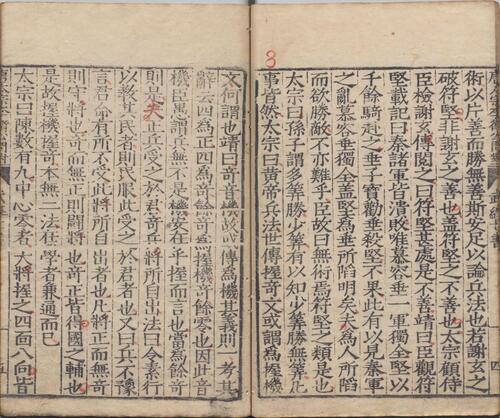 術以片善而勝無善斯安足以論兵法也若謝玄之
破符堅非謝玄之善也蓋符堅之不善也太宗顧侍
臣檢謝玄傳閱之曰符堅甚處是不善靖曰臣觀符
堅載記曰秦諸軍皆潰敗唯慕容垂一軍獨全堅以
千餘騎赴之垂子寶勸垂殺堅不果此有以見秦軍
之亂慕容垂獨全蓋堅為垂所陷明矣夫為人所陷
而欲勝敵不亦難乎臣故曰無術焉符堅之類是也
太宗曰孫子謂多筭勝少筭有以知少筭勝無筭凡
事皆然太宗曰黃帝兵法世傳握奇文或謂為握機
8
文何謂也靖曰奇音機故或傳為機其義則一考其
辭云四為正四為奇餘奇為握機奇餘零也因此音
機臣愚謂兵無不是機安在乎握而言也當為餘奇
則是夫正兵受之於君奇兵將所自出法曰令素行
以教其民者則民服此受之於君者也又曰兵不豫
言君命有所不受此將所自出者也凡將正而無奇
則守將也奇而無正則鬬將也奇正皆得國之輔也
是故握機握奇本無二法在學者兼通而已
太宗曰陳數有九中心零者大將握之四面八向皆